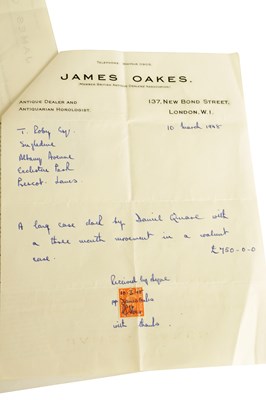 JAMES OAKES.
(MEMBER BRITISH ANTIQUE DEALERS' ASSOCIATION)
ANTIQUE DEALER AND
ANTIQUARIAN HOROLOGIST.
137, NEW BOND STREET,
LONDON, W.1.
10 March
T. Roby Esq.
Albany Avenue
Eccleston Park
Prescot. Lancs
A long case clock by Daniel Quare with
a three month movement in a walnut
case. £750-0-0
Received by cheque
with thanks.